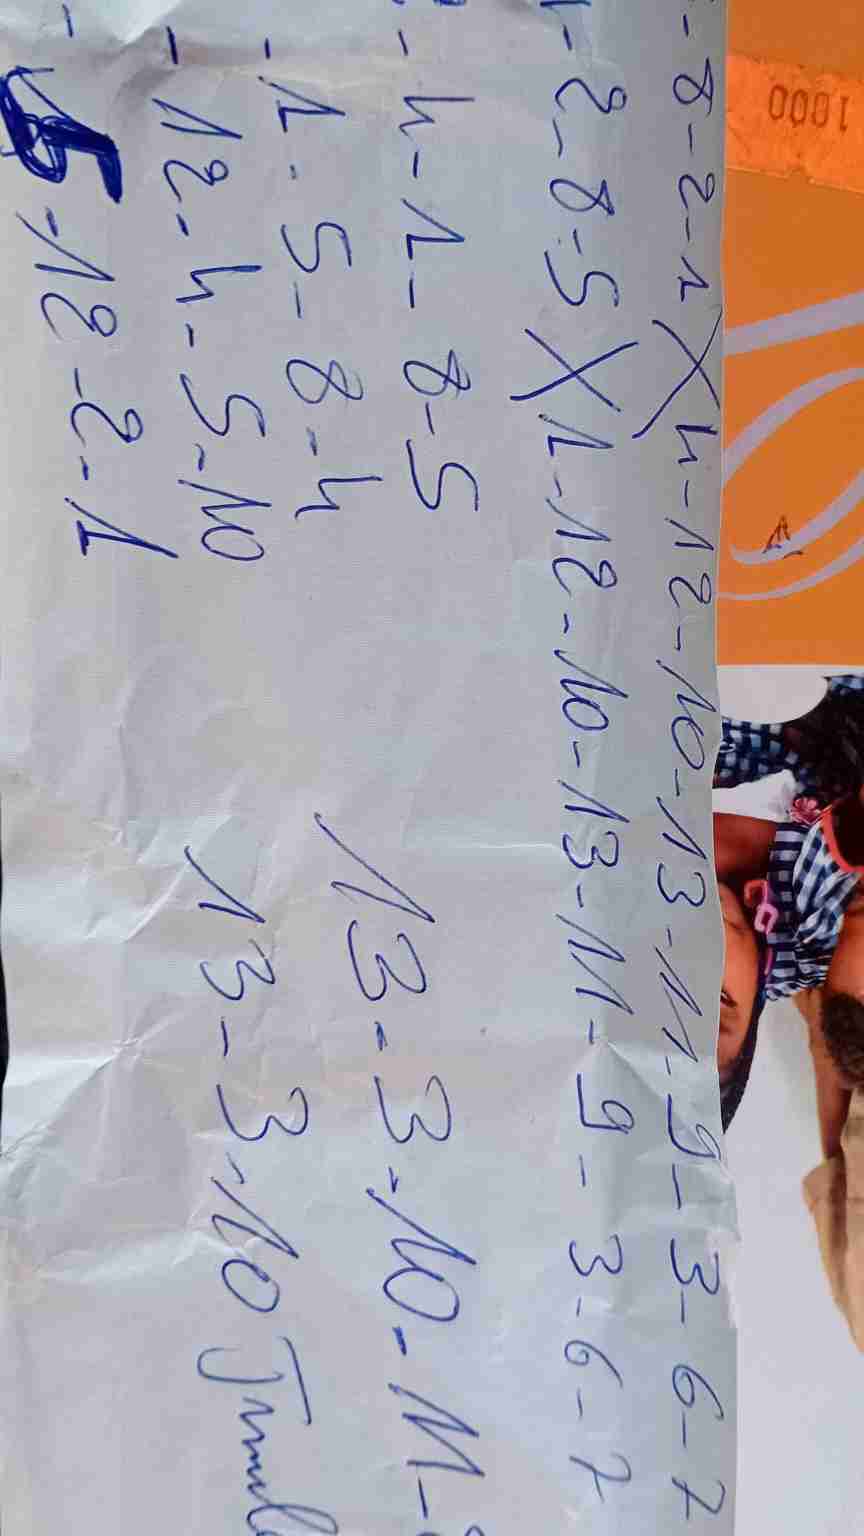 1000
- 8 - 2 - 1 X 4 - 12 - 10 - 13 - 11 - 9 - 3 - 6 - 7
- 2 - 8 - 5 X 1 - 12 - 10 - 13 - 11 - 9 - 3 - 6 - 7
- 4 - 1 - 8 - 5
- 1 - 5 - 8 - 4
13 - 3 - 10 - 11 -
- 12 - 4 - 5 - 10
13 - 3 - 10
- 5 - 12 - 2 - 1